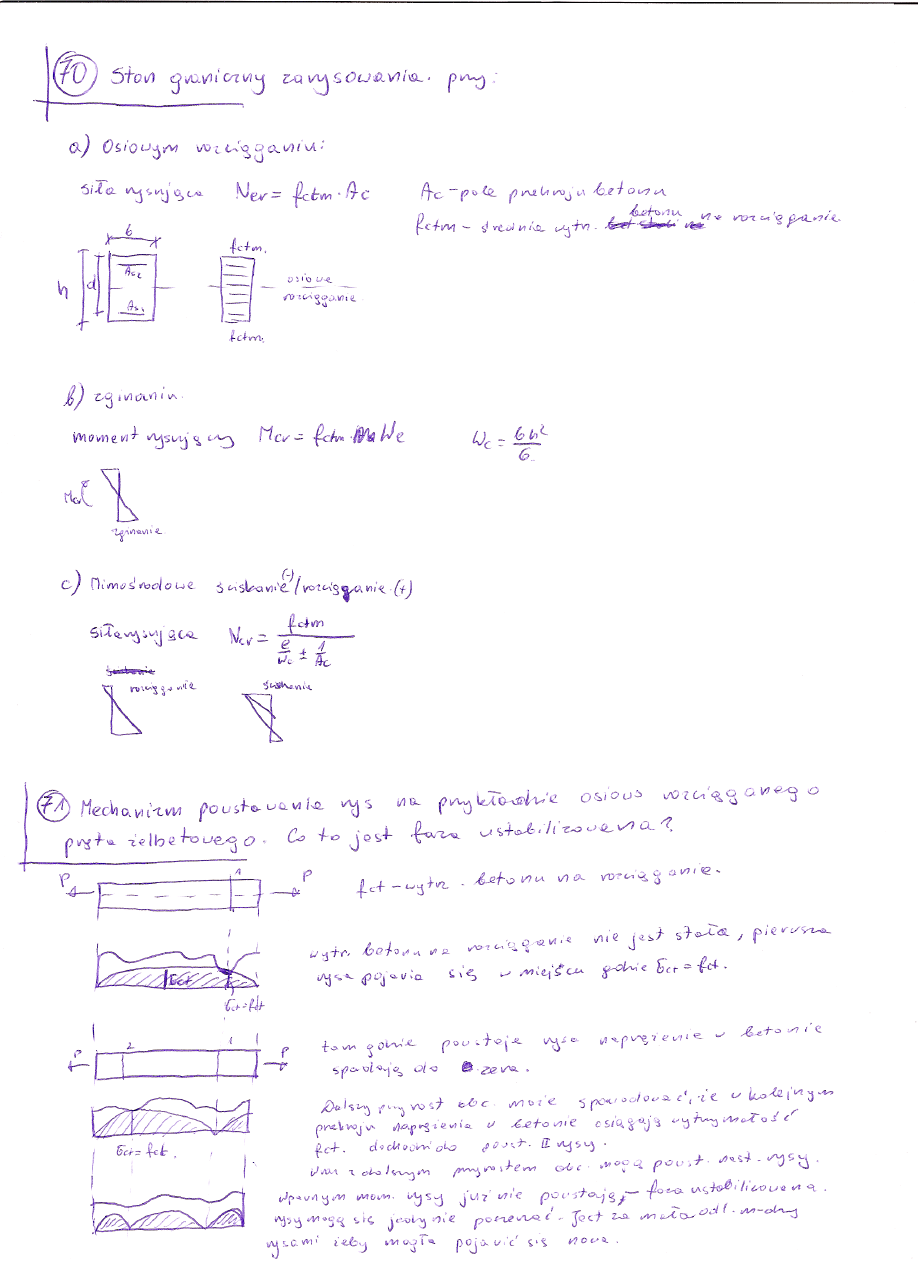 70 Stan graniczny zarysowania. przy:
a) Osiowym rozciąganiu:
siła rysująca Ncr = fctm · Ac Ac - pole przekroju betonu
fctm - średnia wytr. betonu na rozciąganie
b
fctm.
h d As2 osiowe
rozciąganie
As1
fctm.
b) zginaniu.
moment rysujący Mcr = fctm · Wc Wc = bh²/6
Mcr
zginanie
c) Mimośrodowe ściskanie (-) / rozciąganie (+)
siła rysująca Ncr = fctm / (e/Wc ± 1/Ac)
rozciąganie ściskanie
71 Mechanizm powstawania rys na przykładzie osiowo rozciąganego
pręta żelbetowego. Co to jest faza ustabilizowana?
P 1 P fct - wytrz. betonu na rozciąganie.
wytr. betonu na rozciąganie nie jest stała, pierwsza
rysa pojawia się w miejscu gdzie σct = fct.
σct
σct = fct
P 2 1 P
tam gdzie powstaje rysa naprężenie w betonie
spadają do zera.
Dalszy przyrost obc. może spowodować, że w kolejnym
przekroju naprężenia w betonie osiągają wytrzymałość
fct. dochodzi do powst. II rysy.
σct = fct.
Wraz z dalszym przyrostem obc. mogą powst. nast. rysy.
W pewnym mom. rysy już nie powstają - faza ustabilizowana.
rysy mogą się jedynie poszerzać. Jest za mała odl. m-dzy
rysami żeby mogła pojawić się nowa.